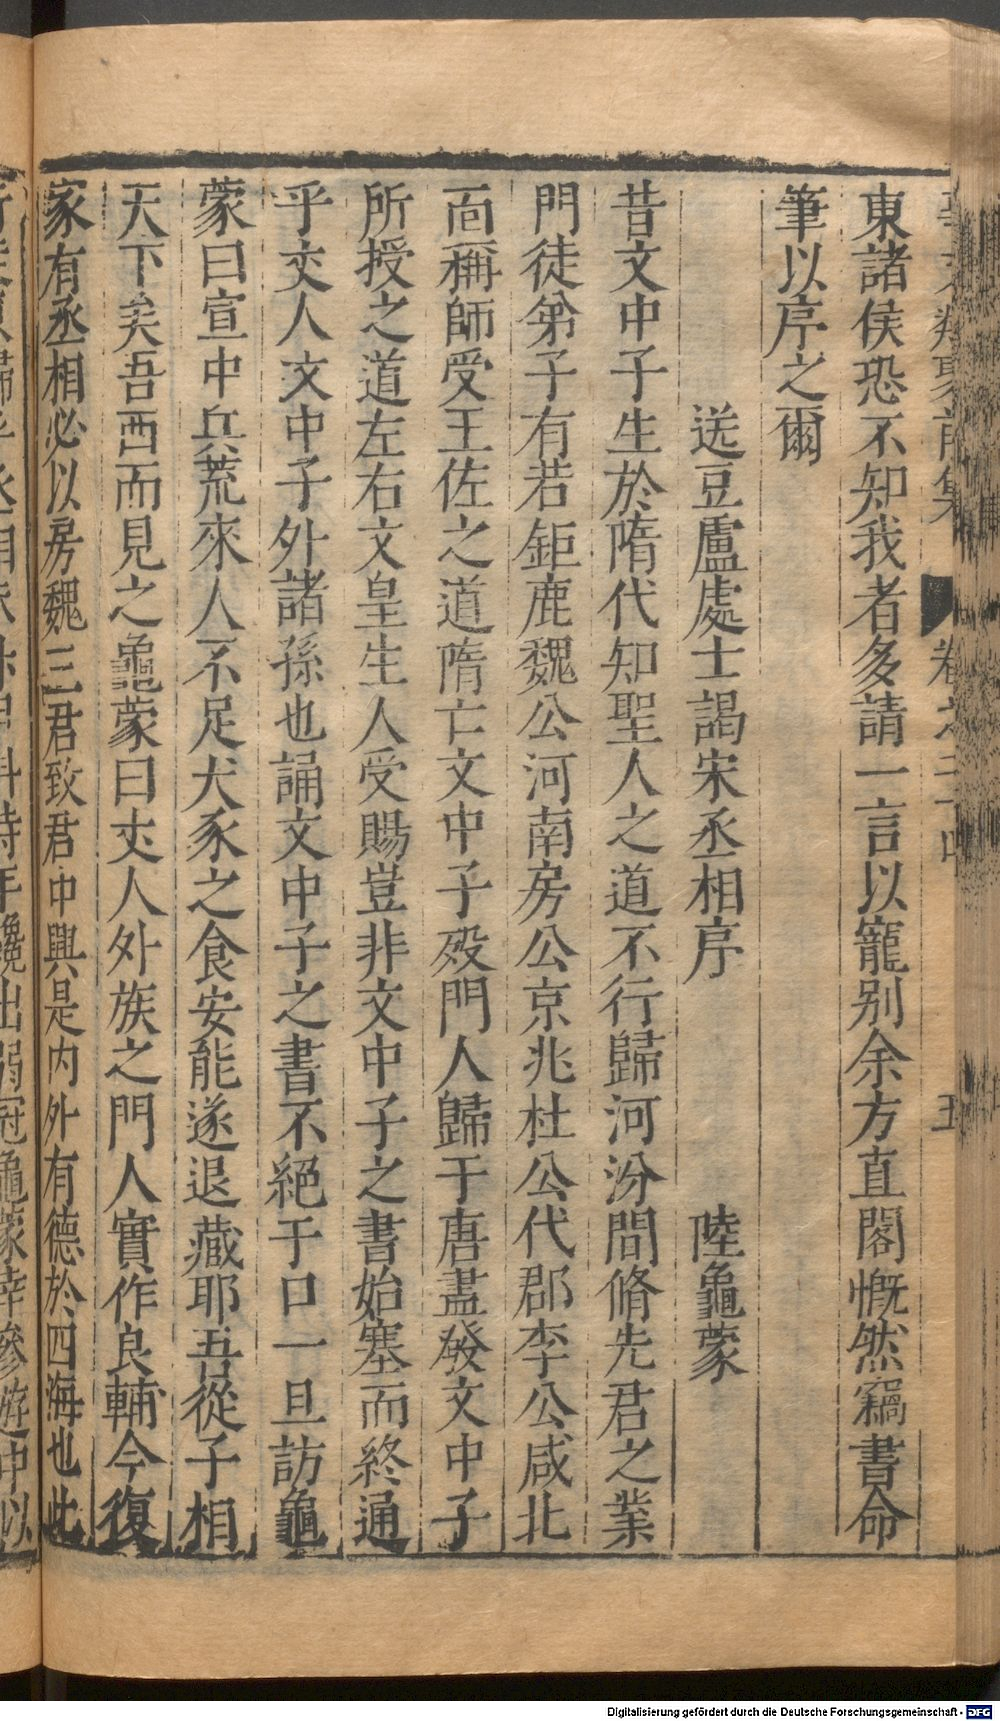 卷之二十四 五
東諸侯恐不知我者多請一言以寵别余方直閣慨然竊書命
筆以序之爾
送豆盧處士謁宋丞相序 陸龜蒙
昔文中子生於隋代知聖人之道不行歸河汾間脩先君之業
門徒弟子有若鉅鹿魏公河南房公京兆杜公代郡李公咸北
面稱師受王佐之道隋亡文中子殁門人歸于唐盡發文中子
所授之道左右文皇生人受賜豈非文中子之書始塞而終通
乎丈人文中子外諸孫也誦文中子之書不絕于口一旦訪龜
蒙曰宣中兵荒來人不足犬豕之食安能遂退藏耶吾從子相
天下矣吾西而見之龜蒙曰丈人外族之門人實作良輔今復
家有丞相必以房魏三君致君中興是内外有德於四海也此
Digitalisierung gefördert durch die Deutsche Forschungsgemeinschaft - DFG